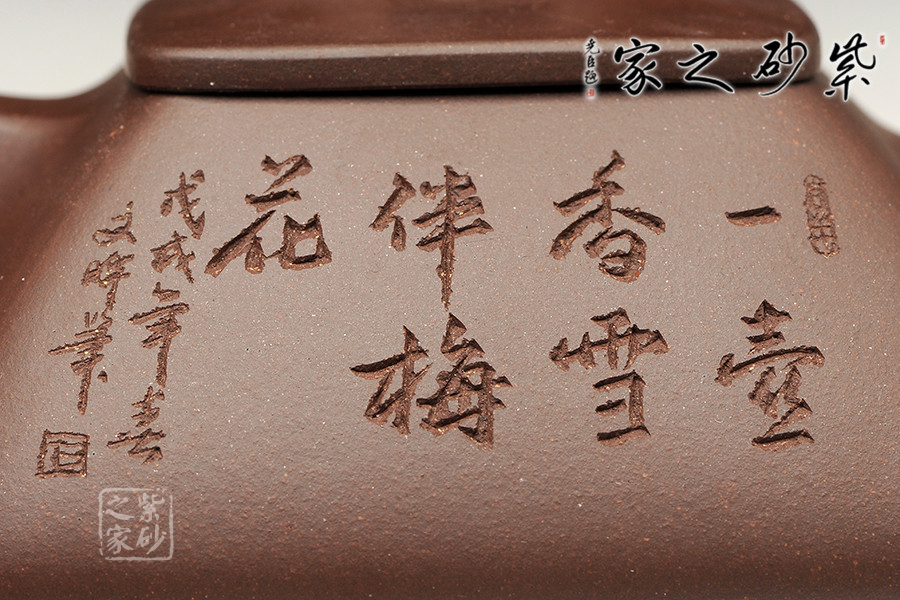 紫砂之家
一壶
香雪
伴梅
花
戊戌年春
紫砂
之家